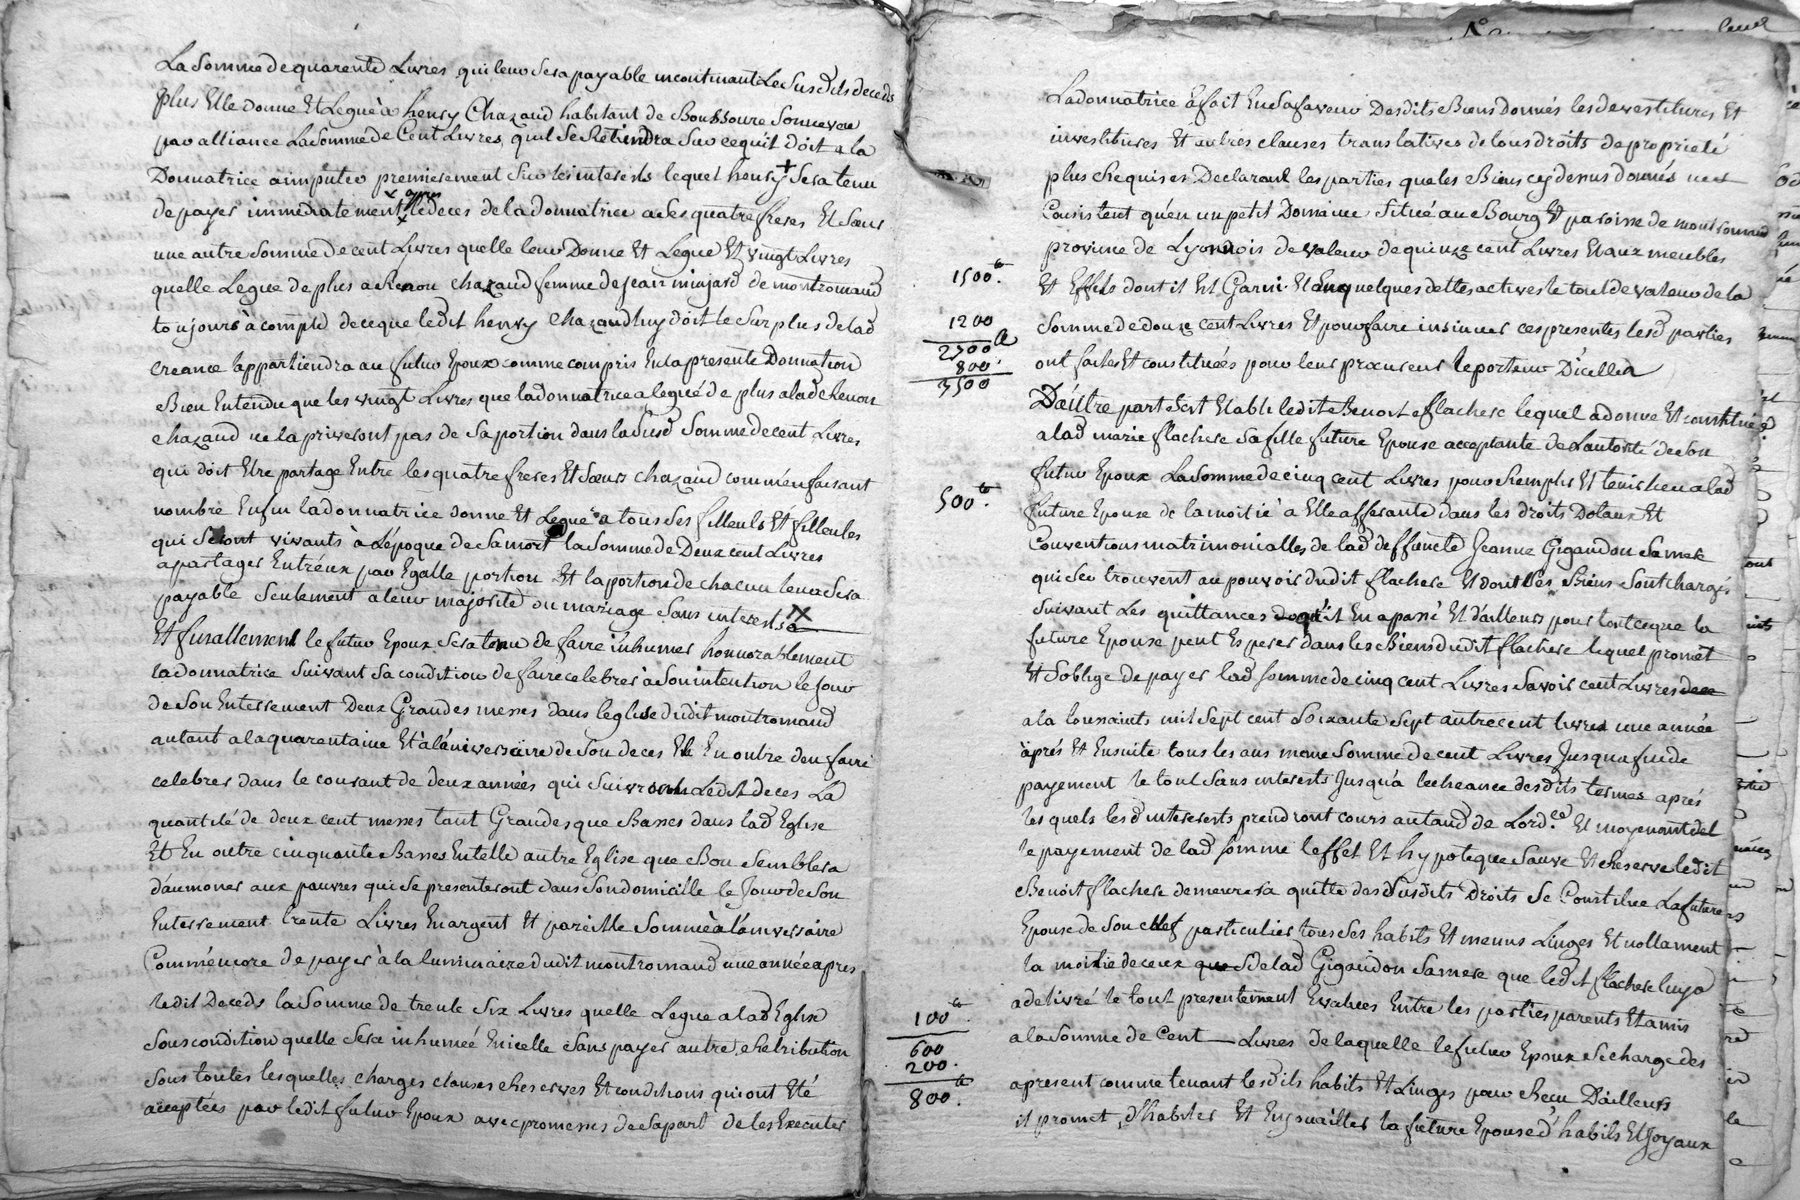 La Somme de quarente Livres qui leur Sera payable incontinant Le Susdits deceds
plus Elle donne Et Legue à henry Chazaud habitant de Boussoure Son neveu
par alliance La Somme de Cent Livres, quil Se Retiendra Sur ce quil doit a la
Donnatrice a imputer premierement Sur les interests lequel henry + Sera tenu
de payer immediatement apres le deces de la donnatrice a Ses quatre freres Et Sœurs
une autre Somme de cent Livres quelle leur Donne Et Legue Et vingt Livres
quelle Legue de plus a Renon chazaud femme de jean minjard de montromand
toujours à compte de ce que ledit henry chazaud luy doit le Surplus de lad
creance appartiendra au futur Epoux comme compris En la presente Donnation
Bien Entendu que les vingt Livres que la donnatrice a legué de plus a lad Renon
chazaud ne la priveront pas de Sa portion dans la Susd Somme de cent Livres
qui doit Etre partagé Entre les quatre freres Et Sœurs chazaud comme En faisant
nombre Enfin la donnatrice donne Et Legue a tous Ses filleuls Et filleules
qui Seront vivants à L'époque de Sa mort la Somme de Deux cent Livres
a partager Entr'eux par Egalle portion Et la portion de chacun leur Sera
payable Seulement a leur majorité ou mariage Sans interests
Et finallement le futur Epoux Sera tenu de faire inhumer honnorablement
la donnatrice Suivant Sa condition de faire celebrer à Son intention le jour
de Son Enterrement Deux Grandes messes dans leglise dudit montromand
autant a la quarentaine Et à l'aniversaire de Son deces Et En outre d'en faire
celebrer dans le courant de deux années qui Suivront Ledit deces La
quantité de deux cent messes tant Grandes que Basses dans lad Eglise
Et En outre cinquante Basses En telle autre Eglise que Bon Semblera
d'aumoner aux pauvres qui Se presenteront dans Son domicille le Jour de Son
Enterrement trente Livres En argent Et pareille Somme à l'aniversaire
Comme encore de payer à la luminaire dudit montromand une année apres
ledit Deceds la Somme de trente Six Livres quelle Legue a lad Eglise
Sous condition quelle Sera inhumée En icelle Sans payer autre Retribution
Sous toutes lesquelles charges clauses Reserves Et conditions qui ont Eté
acceptées par ledit futur Epoux avec promesses de Sa part de les Executer
La donnatrice à fait En Sa faveur Desdits Biens donnés les devestitures Et
investitures Et autres clauses translatives de tous droits de proprieté
plus Requises Declarant les parties que les Biens cy dessus donnés ne
Consistent qu'en un petit Domaine Situé au Bourg Et paroisse de montromand
province de Lyonnois de valeur de quinze cent Livres Et aux meubles
1500.lt Et Effets dont il Est Garni Et En quelques dettes actives le tout de valeur de la
1200 Somme de douze cent Livres Et pour faire insinuer ces presentes lesd parties
2700
800 ont faites Et constituées pour leur procureur le porteur D'icelles
3500
D'autre part Est Etabli ledit Benoit flachere lequel a donné Et constitué
a lad marie flachere Sa fille future Epouse acceptante de L'autorité de Son
futur Epoux La Somme de cinq cent Livres pour Remplir Et tenir lieu a lad
500.lt future Epouse de la moitié à Elle afferante dans les droits Dotaux Et
Conventions matrimonialles de lad deffuncte Jeanne Gigandon Sa mere
qui Se trouvent au pouvoir dudit flachere Et dont Ses Biens Sont chargés
Suivant Les quittances qu'il En a passé Et d'ailleurs pour tout ce que la
future Epouse peut Esperer dans les Biens dudit flachere lequel promet
Et S'oblige de payer lad Somme de cinq cent Livres Savoir cent Livres
a la toussaints mil Sept cent Soixante Sept autre cent livres une année
après Et Ensuite tous les ans meme Somme de cent Livres Jusqu'a fin de
payement le tout Sans interests Jusqu'a lecheance desdits termes après
lesquels lesd interests prendront cours au taud de Lord.ce Et moyenant
le payement de lad Somme l'effet Et hypoteque Sauve Et Reserve ledit
Benoit flachere demeurera quitte des Susdits Droits Se Constitue La future
Epouse de Son chef particulier tous Ses habits Et menus Linges Et notament
la moitie de ceux de lad Gigandon Sa mere que ledit flachere luy a
a delivré le tout presentement Evaluées Entre les parties parents Et amis
100.lt a la Somme de Cent Livres de laquelle le futur Epoux Se charge des
600
200. apresent comme tenant lesdits habits Et Linges pour Recu D'ailleurs
800.lt il promet d'habiller Et Enjouailler la future Epouse d'habits Et Joyaux